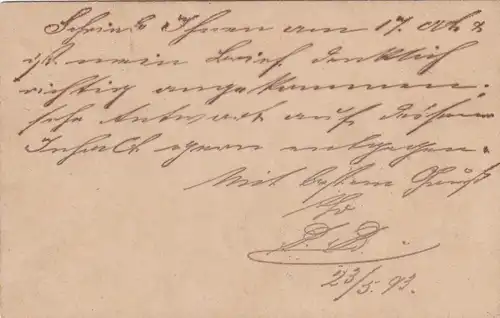 Schrieb Ihnen am 17. ob. &
ist mein Brief denklich
richtig angekommen.
sehe Antwort auf dessen
Inhalt gern entgegen.
Mit bestem Gruß
Ihr
23/5. 93.